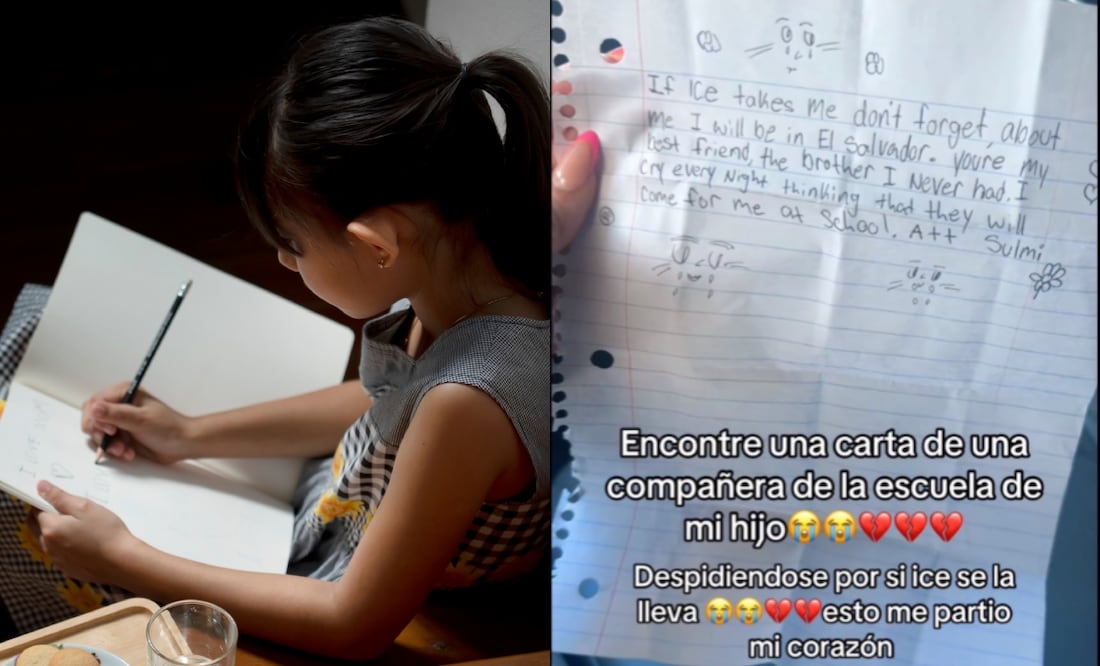 I LOVE
If Ice takes me don't forget about
me I will be in El Salvador. you're my
best friend, the brother I Never had. I
cry every Night thinking that they will
come for me at School. Att Sulmi
Encontre una carta de una
compañera de la escuela de
mi hijo😭😭💔💔💔
Despidiendose por si ice se la
lleva 😭😭💔💔esto me partio
mi corazón